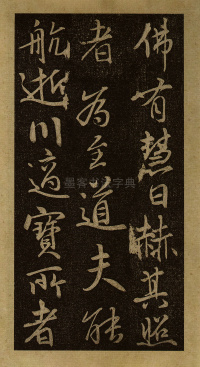 佛有慧日赫其照
者為至道夫能
航逝川適寶所者
墨客书法字典